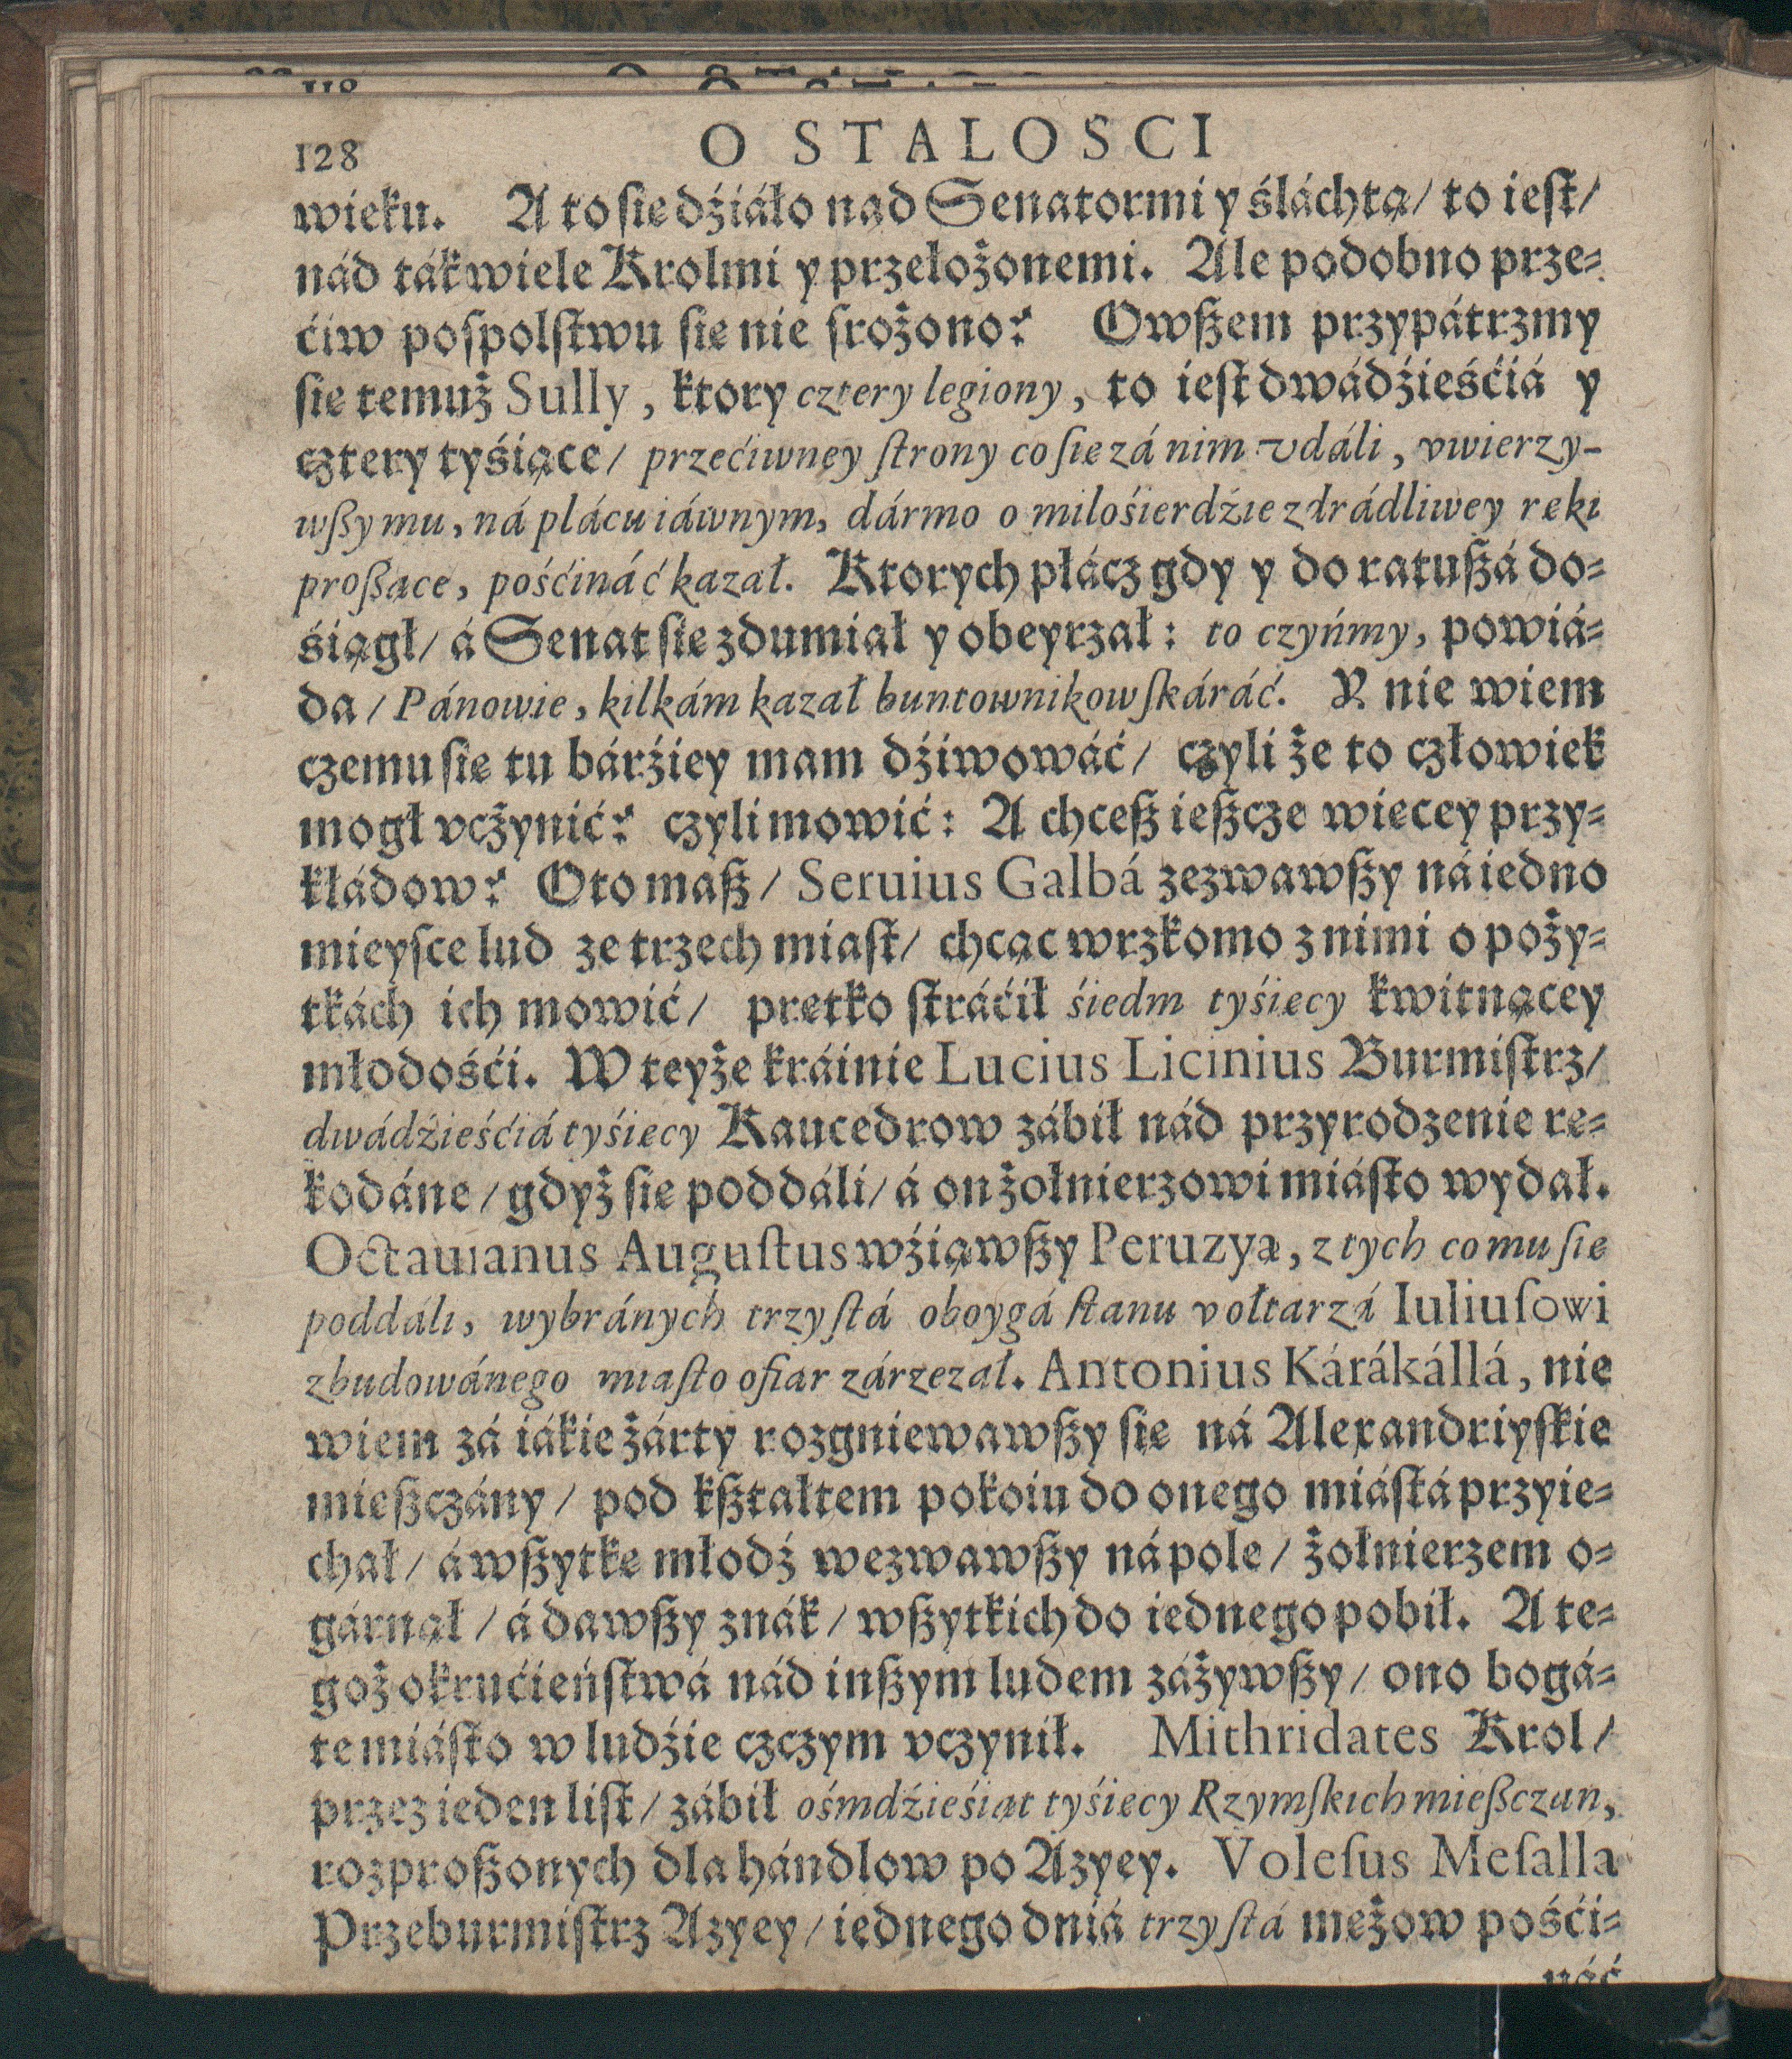 128 O STALOSCI
wieku. A to ſie dźiáło nąd Senatormi y śláchtą/ to ieſt/
nád ták wiele Krolmi y przełożonemi. Ale podobno prze⸗
ćiw poſpolſtwu ſie nie ſrożono? Owßem przypátrzmy
ſie temuż Sully, ktory cztery legiony, to ieſt dwádźieśćiá y
cztery tyśiące/ przećiwney ſtrony co ſie zá nim vdáli, vwierzy-
wßy mu, ná plácu iáwnym, dármo o miłośierdźie zdrádliwey ręki
proßące, pośćináć kazał. Ktorych płácz gdy y do ratußá do⸗
śiągł/ á Senat ſie zdumiał y obeyrzał: to czyńmy, powiá⸗
da/ Pánowie, kilkám kazał buntownikow ſkáráć. Y nie wiem
czemu ſie tu bárźiey mam dźiwowáć/ czyli że to człowiek
mogł vczynić? czyli mowić: A chceß ießcze więcey przy⸗
kłádow? Oto maß/ Seruius Galbá zezwawßy ná iedno
mieyſce lud ze trzech miaſt/ chcąc wrzkomo z nimi o poży⸗
tkách ich mowić/ prętko ſtráćił śiedm tyśięcy kwitnącey
młodośći. W teyże kráinie Lucius Licinius Burmiſtrz/
dwádźieśćiá tyśięcy Kaucedrow zábił nád przyrodzenie rę⸗
kodáne/ gdyż ſie poddáli/ á on żołnierzowi miáſto wydał.
Octauianus Auguſtus wźiąwßy Peruzyą, z tych co mu ſie
poddáli, wybránych trzy ſtá oboygá ſtanu v ołtarzá Iuliuſowi
zbudowánego miaſto ofiar zárzezał. Antonius Kárákállá, nie
wiem zá iákie żárty rozgniewawßy ſię ná Alexandriyſkie
mießczány/ pod kßtałtem pokoiu do onego miáſtá przyie⸗
chał/ á wßytkę młodź wezwawßy ná pole/ żołnierzem o⸗
gárnął/ á dawßy znák/ wßytkich do iednego pobił. A te⸗
goż okrućieńſtwá nád inßym ludem záżywßy/ ono bogá⸗
te miáſto w ludźie czczym vczynił. Mithridates Krol/
przez ieden liſt/ zábił ośmdźieśiąt tyśięcy Rzymſkich mießczan,
rozproßonych dla hándlow po Azyey. Voleſus Meſalla
Przeburmiſtrz Azyey/ iednego dniá trzy ſtá mężow pośći⸗
náć